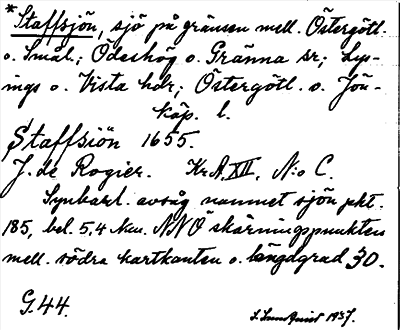 *Staffsjön, sjö på gränsen mell. Östergötl.
o. Smål.; Ödeshög o. Gränna sr; Lys-
ings o. Vista hdr; Östergötl. o. Jön-
köp. l.
Staffsiön 1655.
J. de Rogier. Kr.A. XII, N:o C.
Synbarl. avsåg namnet sjön pkt.
185, bel. 5,4 km. NNÖ skärningspunkten
mell. södra kartkanten o. längdgrad 30.
G.44.
S. Lundqvist 1937.